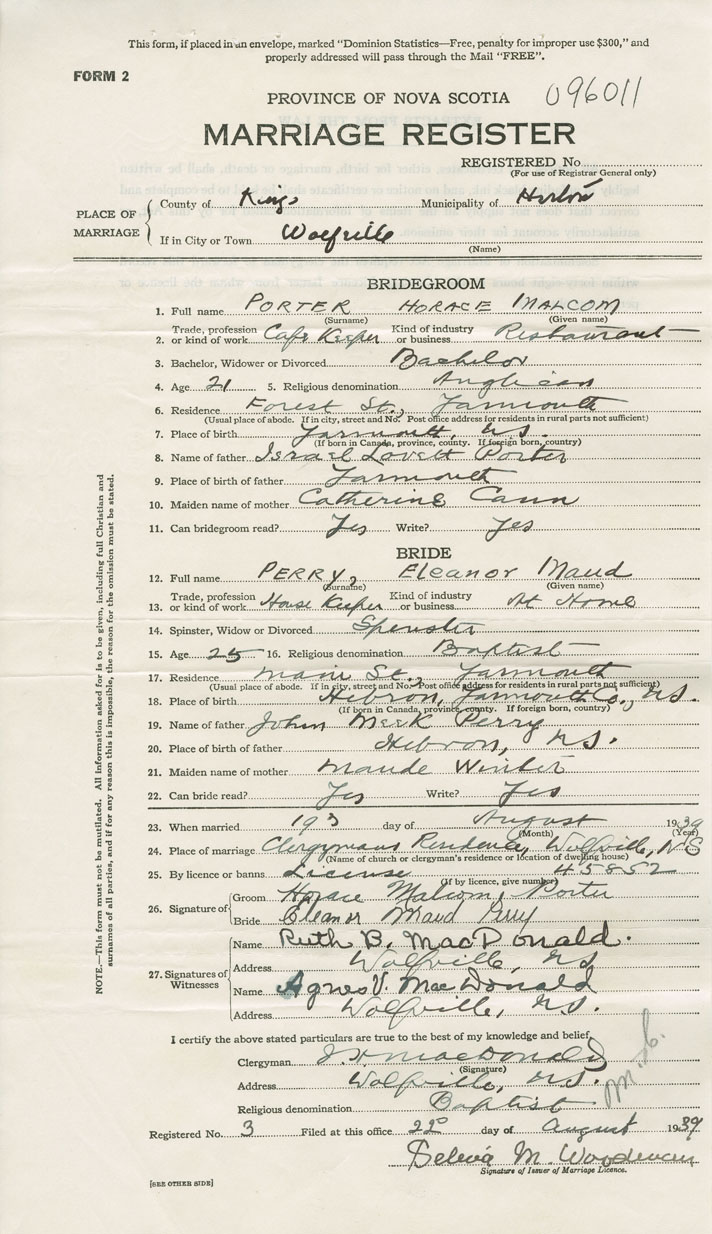 This form, if placed in an envelope, marked "Dominion Statistics—Free, penalty for improper use $300," and
properly addressed will pass through the Mail "FREE".
FORM 2
PROVINCE OF NOVA SCOTIA 096011
MARRIAGE REGISTER
REGISTERED No.
(For use of Registrar General only)
PLACE OF MARRIAGE
County of Kings Municipality of
If in City or Town Wolfville
(Name)
BRIDEGROOM
1. Full name PORTER HORACE MALCOM
(Surname) (Given name)
2. Trade, profession or kind of work Cafe Keeper Kind of industry or business Restaurant
3. Bachelor, Widower or Divorced Bachelor
4. Age 21 5. Religious denomination Anglican
6. Residence Forest St., Yarmouth
(Usual place of abode. If in city, street and No. Post office address for residents in rural parts not sufficient)
7. Place of birth Yarmouth, N.S.
(If born in Canada, province, county. If foreign born, country)
8. Name of father Israel Lovett Porter
9. Place of birth of father Yarmouth
10. Maiden name of mother Catherine Cann
11. Can bridegroom read? Yes Write? Yes
BRIDE
12. Full name PERRY, Eleanor Maud
(Surname) (Given name)
13. Trade, profession or kind of work House Keeper Kind of industry or business At Home
14. Spinster, Widow or Divorced Spinster
15. Age 25 16. Religious denomination Baptist
17. Residence Main St., Yarmouth
(Usual place of abode. If in city, street and No. Post office address for residents in rural parts not sufficient)
18. Place of birth Hebron, Yarmouth Co., N.S.
(If born in Canada, province, county. If foreign born, country)
19. Name of father John Meek Perry
20. Place of birth of father Hebron, N.S.
21. Maiden name of mother Maude Winter
22. Can bride read? Yes Write? Yes
23. When married day of August 1939
(Month) (Year)
24. Place of marriage Clergymans Residence, Wolfville, N.S.
(Name of church or clergyman's residence or location of dwelling house)
25. By licence or banns License 45852
(If by licence, give number)
26. Signature of
Groom Horace Malcom Porter
Bride Eleanor Maud Perry
27. Signatures of Witnesses
Name Ruth B. MacDonald.
Address Wolfville, N.S.
Name Agnes V. MacDonald
Address Wolfville, N.S.
I certify the above stated particulars are true to the best of my knowledge and belief,
Clergyman MacDonald
(Signature)
Address Wolfville, N.S.
Religious denomination Baptist
Registered No. 3 Filed at this office 22 day of August 1939
M. Woodman
Signature of Issuer of Marriage Licence.
[SEE OTHER SIDE]
NOTE.—This form must not be mutilated. All information asked for is to be given, including full Christian and
surnames of all parties, and if for any reason this is impossible, the reason for the omission must be stated.